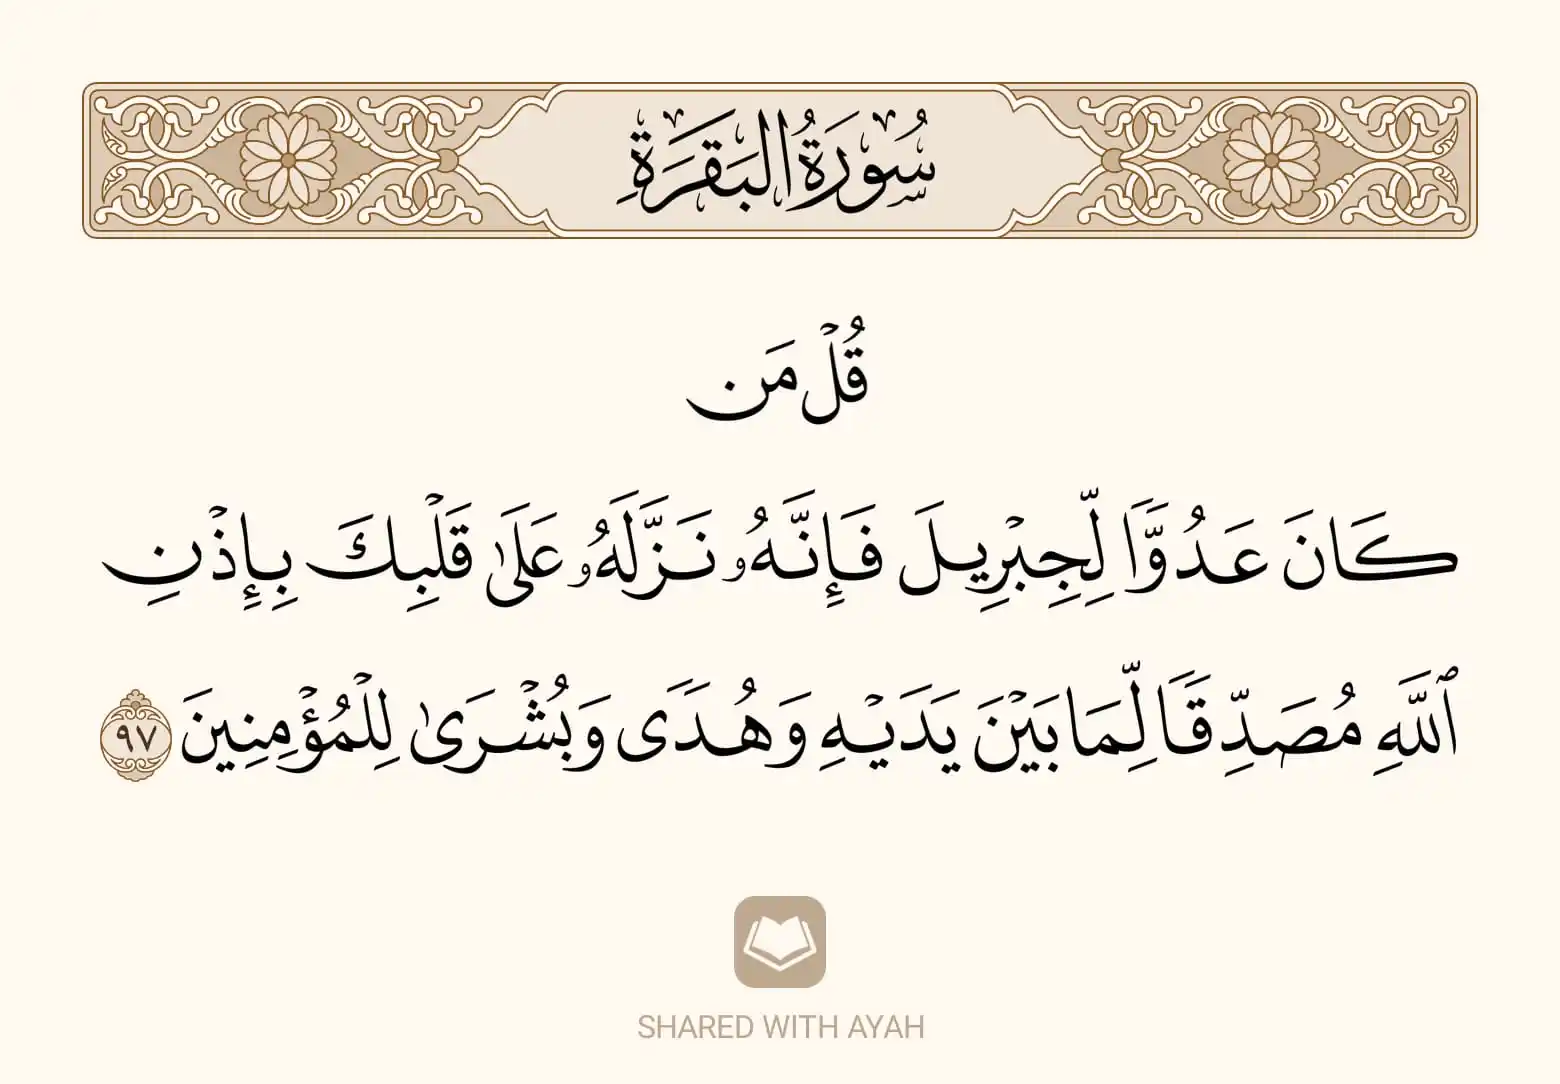 سُورَةُ البَقَرَةِ
قُلۡ مَن
كَانَ عَدُوّٗا لِّجِبۡرِيلَ فَإِنَّهُۥ نَزَّلَهُۥ عَلَىٰ قَلۡبِكَ بِإِذۡنِ
ٱللَّهِ مُصَدِّقٗا لِّمَا بَيۡنَ يَدَيۡهِ وَهُدٗى وَبُشۡرَىٰ لِلۡمُؤۡمِنِينَ ٩٧
SHARED WITH AYAH